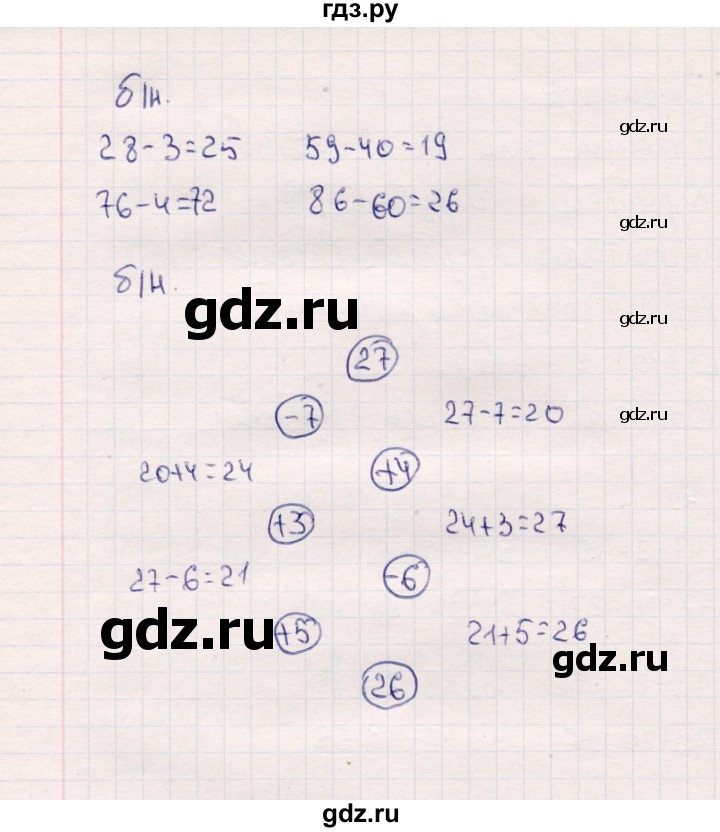 гдз.ру
б/н.
28-3=25 59-40=19
gdz.ru
76-4=72 86-60=26
gdz.ru
б/н.
gdz.ru
gdz.ru
27
-7 27-7=20
gdz.ru
20+4=24 +4
+3 24+3=27
27-6=21 -6
gdz.ru
+5 21+5=26
gdz.ru
26
gdz.ru